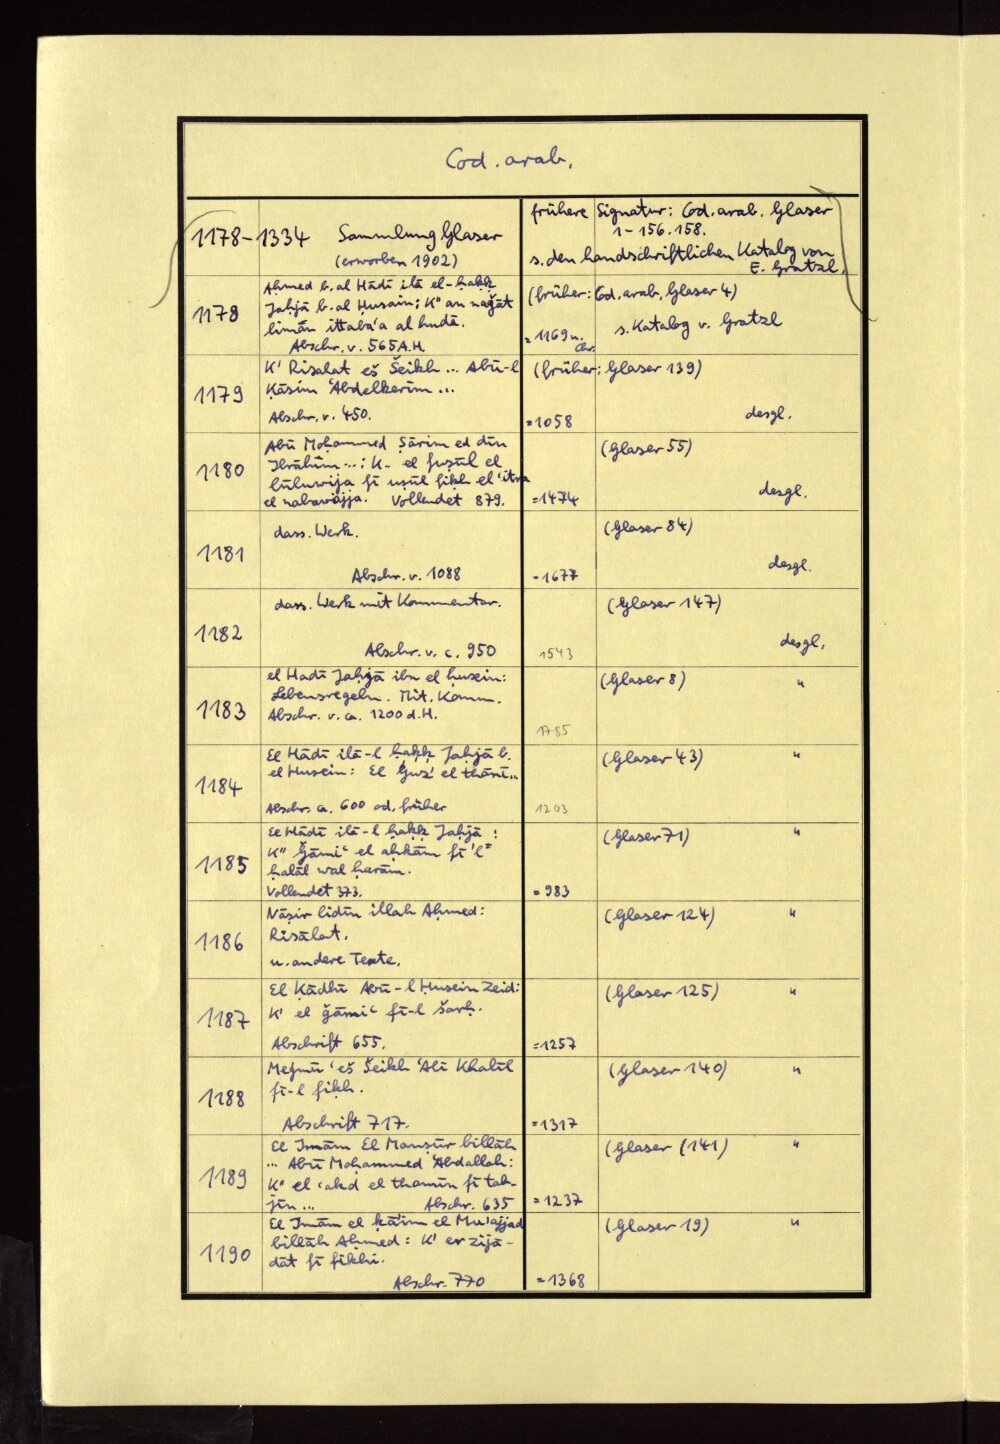 Cod. arab.
1178-1334 Sammlung Glaser
(erworben 1902)
frühere Signatur: Cod. arab. Glaser
1-156. 158.
s. den handschriftlichen Katalog von
E. Gratzl.
1178
Ahmed b. al Hādī ilā el-ḥaḳḳ
Jaḥjā b. al Ḥusain; K" an naǧāt
limān ittaba'a al hudā.
Abschr. v. 565 A.H.
= 1169 n. Chr.
(früher: Cod. arab. Glaser 4)
s. Katalog v. Gratzl
1179
K' Risalat eš Šeikh ... Abū-l
Ḳāsim 'Abdelkerīm ...
Abschr. v. 450.
= 1058
(früher: Glaser 139)
desgl.
1180
Abū Moḥammed Ṣārim ed dīn
Ibrāhīm ...: K. el fuṣūl el
lūluwīja fī uṣūl fiḳh el 'itra
el nabawājja. Vollendet 879.
= 1474
(Glaser 55)
desgl.
1181
dass. Werk.
Abschr. v. 1088
= 1677
(Glaser 84)
desgl.
1182
dass. Werk mit Kommentar.
Abschr. v. c. 950
1543
(Glaser 147)
desgl.
1183
el Hadī Jaḥjā ibn el ḥusein:
Lebensregeln. Mit. Komm.
Abschr. v. ca. 1200 d. H.
1785
(Glaser 8) "
1184
El Hādī ilā-l ḥaḳḳ Jaḥjā b.
el Husein: El Ǧuz' el thānī...
Abschr. ca. 600 od. früher
1203
(Glaser 43) "
1185
El Hādī ilā-l ḥaḳḳ Jaḥjā:
K" Ǧāmi' el aḥkām fī 'l-
ḥalāl wal ḥarām.
Vollendet 373.
= 983
(Glaser 71) "
1186
Nāṣir lidīn illah Aḥmed:
Risālat.
u. andere Texte.
(Glaser 124) "
1187
El Ḳādhī Abū-l Ḥusein Zeid:
K' el ǧāmi' fī-l šarḥ.
Abschrift 655.
= 1257
(Glaser 125) "
1188
Meǧmū' eš Šeikh 'Alī Khalīl
fī-l fiḳh.
Abschrift 717.
= 1317
(Glaser 140) "
1189
El Imām El Manṣūr billāh
... Abū Moḥammed 'Abdallah:
K" el 'aḳd el thamīn fī tab-
jīn ... Abschr. 635
= 1237
(Glaser (141) "
1190
El Imām el ḳā'im el Mu'ajjad
billāh Aḥmed: K' ez zijā-
dāt fī fiḳhi.
Abschr. 770
= 1368
(Glaser 19) "